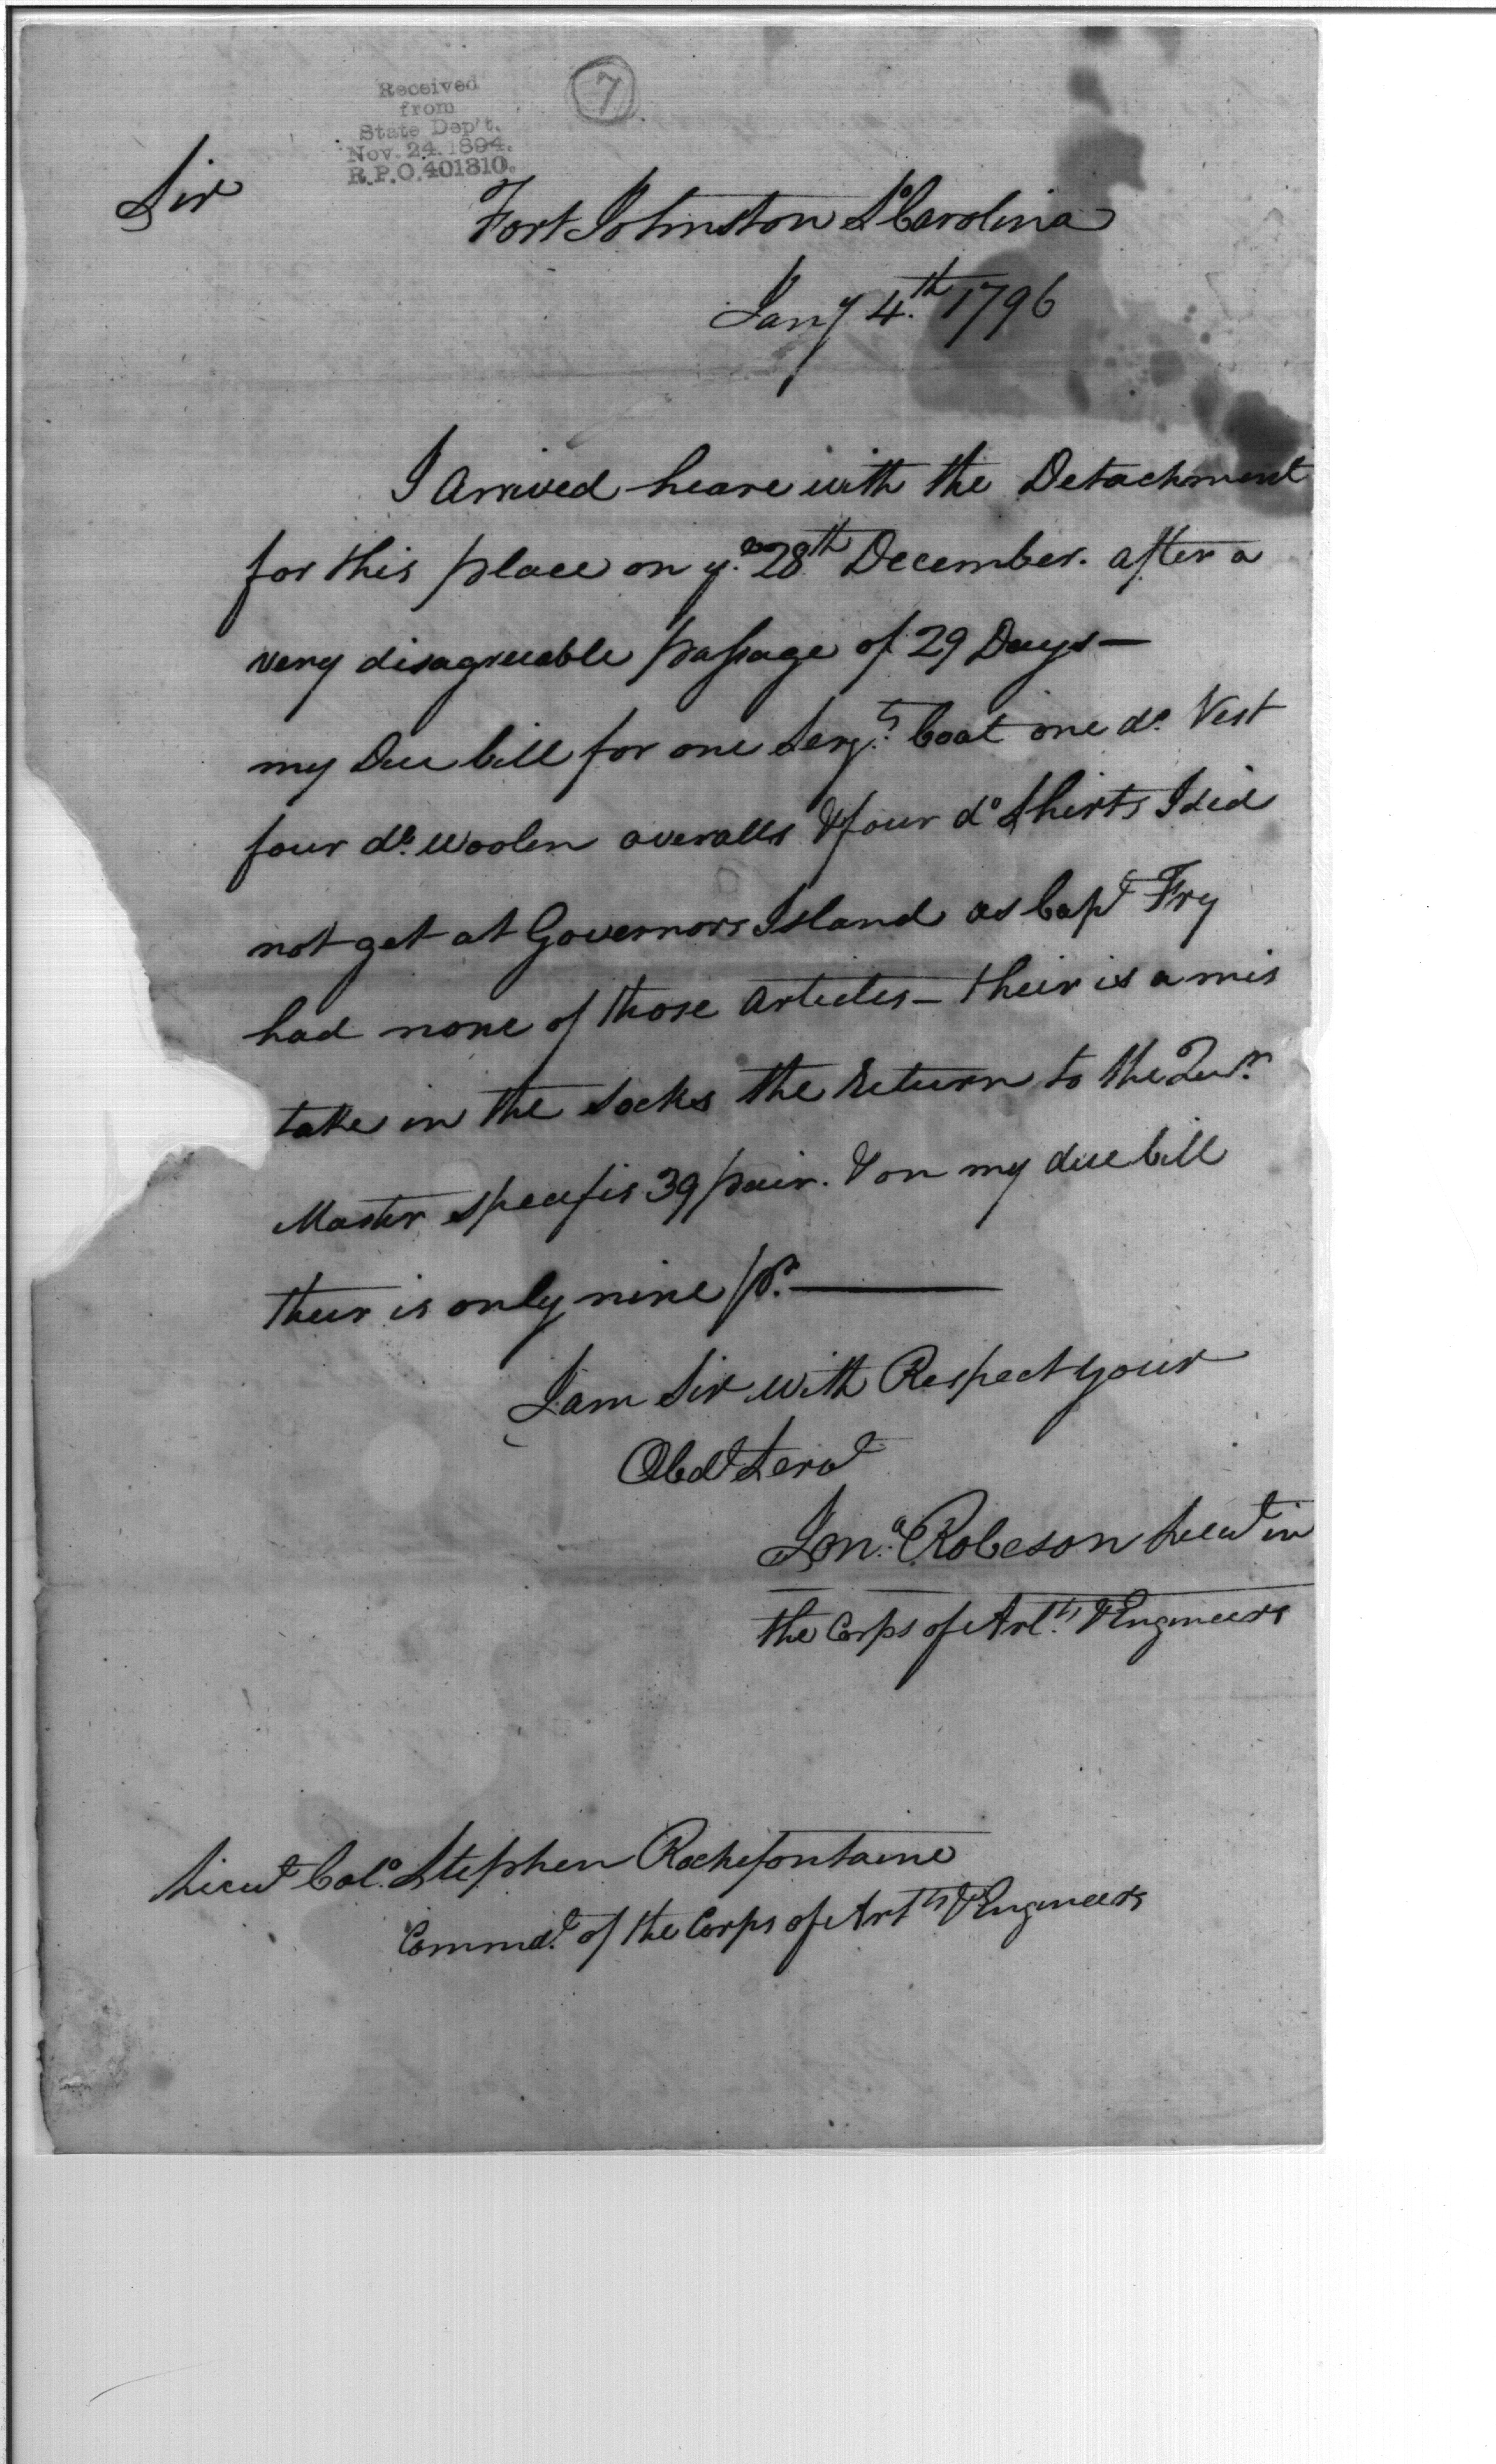 Received
from
State Dep't.
Nov. 24. 1894.
R.P.O. 401810.
7
Sir
Fort Johnston So Carolina
Jany 4.th 1796
I Arrived heare with the Detachment
for this place on ye 28th December. after a
very disagreeable passage of 29 Days—
my Due bill for one Serj.ts Coat one do. Vest
four do. woolen overalls & four do Shirts I did
not get at Governors Island as Capt Fry
had none of those Articles— their is a mis
take in the Socks the Return to the Qur.
Master specifis 39 pair. & on my due bill
their is only nine pr.—
I am Sir with Respect your
Obdt Servt
Jona. Robeson Lieut in
the Corps of Arl.ty & Engineers
Lieut Colo. Stephen Rochefontaine
Commdt. of the Corps of Artty & Engineers